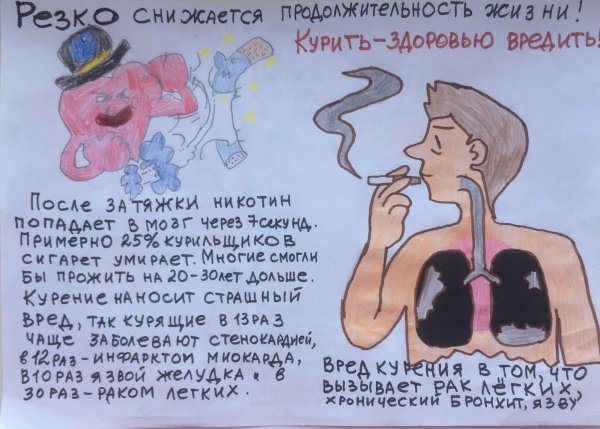 Резко снижается продолжительность жизни!
Курить-здоровью вредить!
После затяжки никотин
попадает в мозг через 7 секунд.
Примерно 25% курильщиков
сигарет умирает. Многие смогли
бы прожить на 20-30 лет дольше.
Курение наносит страшный
вред, так курящие в 13 раз
чаще заболевают стенокардией,
в 12 раз-инфарктом миокарда,
в 10 раз язвой желудка и в
30 раз-раком легких.
Вред курения в том, что
вызывает рак лёгких,
хронический бронхит, язву